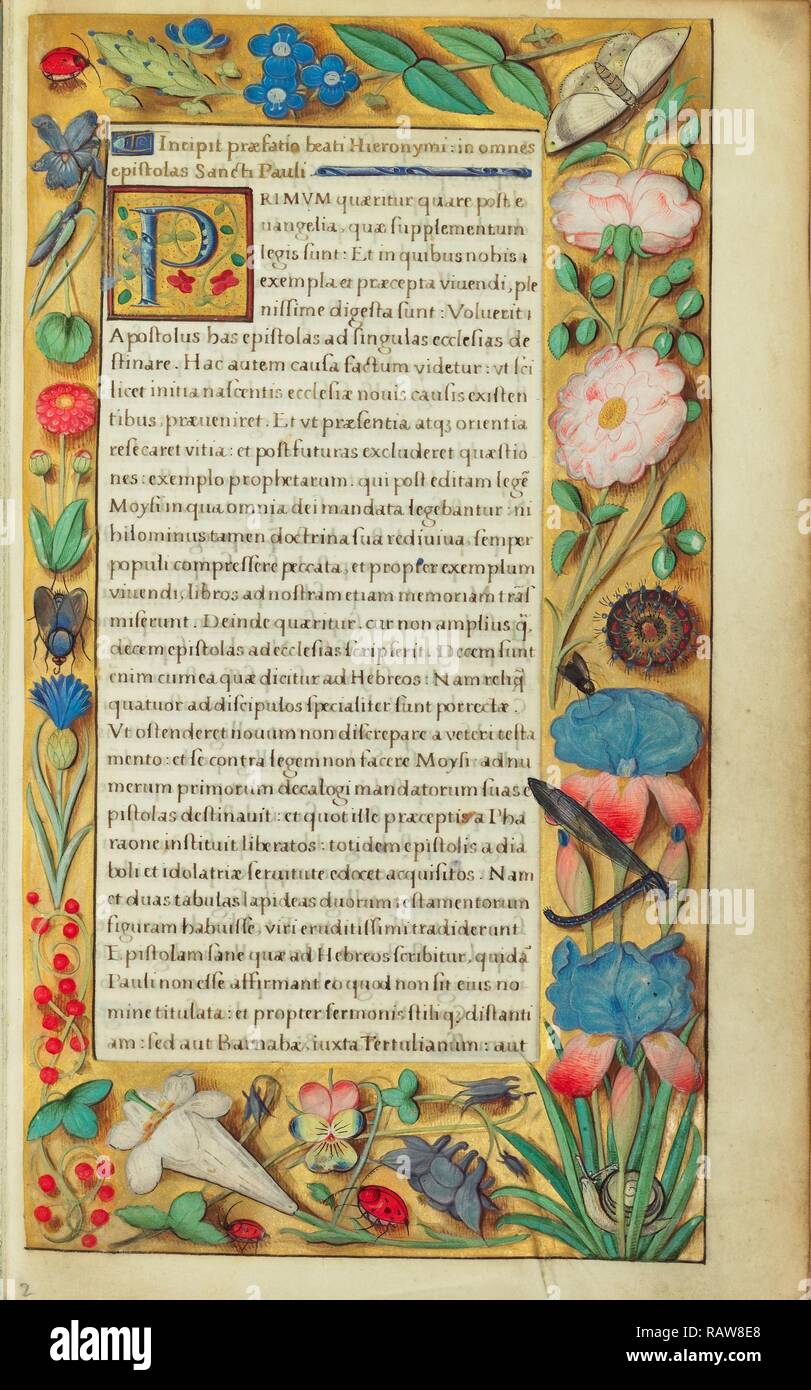 Incipit præfatio beati Hieronymi: in omnes
epistolas Sancti Pauli.
PRIMVM quæritur quare post e
uangelia, quæ supplementum
legis sunt: Et in quibus nobis
exempla et præcepta viuendi, ple
nissime digesta sunt: Voluerit
Apostolus has epistolas ad singulas ecclesias de
stinare. Hac autem causa factum videtur: vt sci
licet initia nascentis ecclesiæ nouis causis existen
tibus, præueniret. Et vt præsentia atq; orientia
resecaret vitia: et post futuras excluderet quæstio
nes: exemplo prophetarum. qui post editam legē
Moysi in qua omnia dei mandata legebantur: ni
hilominus tamen doctrina sua rediuiua, semper
populi compressere peccata, et propter exemplum
viuendi, libros ad nostram etiam memoriam trās
miserunt. Deinde quæritur, cur non amplius q̄
decem epistolas ad ecclesias scripserit. Decem sunt
enim cum ea quæ dicitur ad Hebreos: Nam reliq̄
quatuor ad discipulos specialiter sunt porrectæ.
Vt ostenderet nouum non discrepare a veteri testa
mento: et se contra legem non facere Moysi: ad nu
merum primorum decalogi mandatorum suas e
pistolas destinauit: et quot ille præceptis a Pha
raone instituit liberatos: totidem epistolis a dia
boli et idolatriæ seruitute edocet acquisitos. Nam
et duas tabulas lapideas duorum testamentorum
figuram habuisse, viri eruditissimi tradiderunt
Epistolam sane quæ ad Hebreos scribitur, quidā
Pauli non esse affirmant eo quod non sit eius no
mine titulata: et propter sermonis stiliq; distanti
am: sed aut Barnabæ, iuxta Tertulianum: aut
2
alamy
Image ID: RAW8E8
www.alamy.com